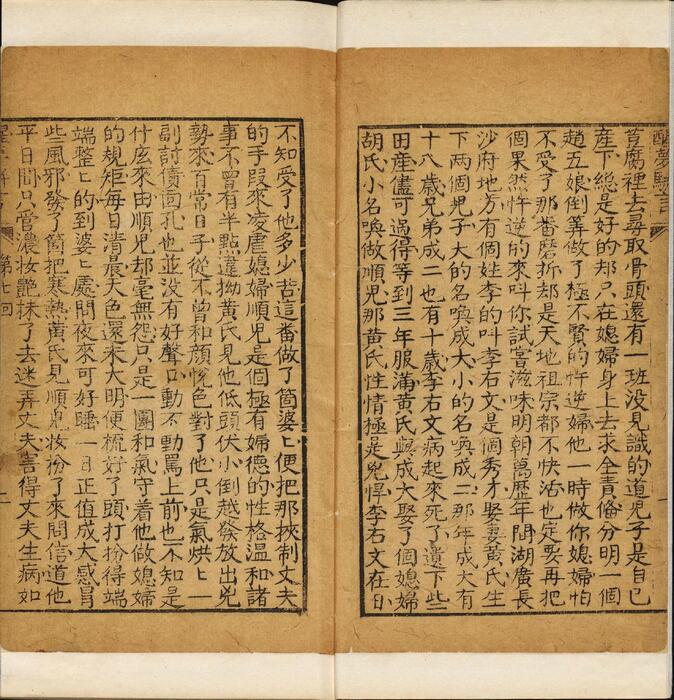 醒夢駢言
莒腐裡去尋取骨頭還有一班没見識的道兒子是自己
産下總是好的却只在媳婦身上去求全責俻分明一個
趙五娘倒筭做了極不賢的忤逆婦他一時做你媳婦怕
不受了那番磨折却是天地祖宗都不快活也定娶再把
個果然忤逆的來呌你試嘗滋味明朝萬歷年間湖廣長
沙府地方有個姓李的呌李右文是個秀才娶妻黄氏生
下两個兒子大的名喚成大小的名喚成二那年成大有
十八歲兄弟成二也有十歲李右文病起來死了遺下些
田産儘可過得等到三年服滿黄氏與成大娶了個媳婦
胡氏小名喚做順兒那黄氏性情極是兇悍李右文在日
不知受了他多少苦這番做了箇婆匕便把那挾制丈夫
的手段來凌虐媳婦順兒是個極有婦德的性格温和諸
事不曾有半點違拗黄氏見他低頭伏小倒越發放出兇
勢來百常日子從不曾和顔悅色對了他只是氣烘匕一
副討債面孔也並没有好聲口動不動罵上前也不知是
什庅來由順兒却毫無怨只是一團和氣守着他做媳婦
的規矩每日清晨天色還未大明便梳好了頭打扮得端
端整匕的到婆匕處問夜來可好睡一日正值成大感冒
些風邪發了箇把寒熱黄氏見順兒妝扮了來問信道他
平日間只管濃妝艷抹了去迷弄丈夫害得丈夫生病如
第七回